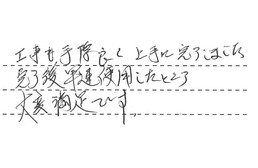 工事も手際良く上手に完了しました
完了後早速使用したところ
大変満足です。